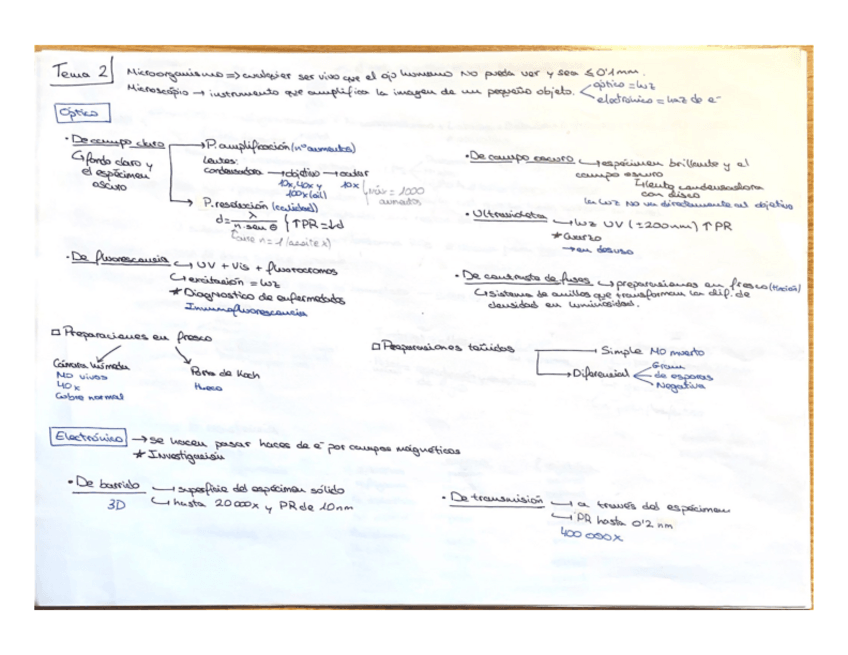 Tema 2
Microorganismo => cualquier ser vivo que el ojo humano NO pueda ver y sea ≤ 0'1mm.
Microscopio → instrumento que amplifica la imagen de un pequeño objeto.
óptico = luz
electrónico = haz de e⁻
Óptico
· De campo claro
fondo claro y
el espécimen
oscuro
→ P. amplificación (nº aumentos)
Lentes:
condensadora → objetivo → ocular
10x, 40x y 10x
100x (oil)
máx = 1000
aumentos
→ P. resolución (calidad)
d = λ / n·sen θ (↑PR = ↓d
aire n = 1 / aceite
· De campo oscuro → espécimen brillante y el
campo oscuro
lente condensadora
con disco
la luz NO va directamente al objetivo
· Ultravioleta → luz UV (=200nm) ↑PR
* Cuarzo
→ en desuso
· De fluorescencia → UV + Vis + fluorocromos
excitación = luz
* Diagnostico de enfermedades
Inmunofluorescencia
· De contraste de fases → preparaciones en fresco
sistema de anillos que transforman las dif. de
densidad en luminosidad.
□ Preparaciones en fresco
Cámara húmeda
MO vivos
40x
Cubre normal
Porta de Koch
Hueco
□ Preparaciones teñidas
→ Simple MO muerto
→ Diferencial
Gram
de esporas
Negativa
Electrónico → se hacen pasar haces de e⁻ por campos magnéticos
* Investigación
· De barrido → superficie del espécimen sólido
3D → hasta 20 000x y PR de 10nm
· De transmisión → a través del espécimen
→ PR hasta 0'2 nm
400 000x